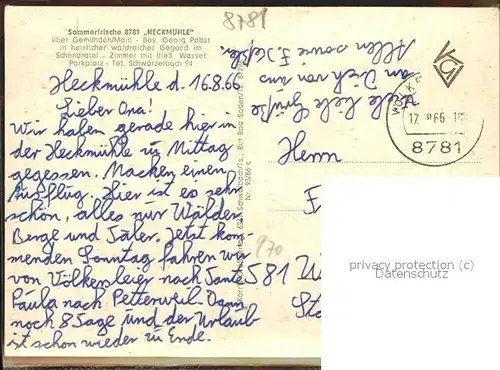 8781
"Sommerfrische 8781 "HECKMÜHLE"
über Gemünden/Main - Bes. Georg Pabst
in herrlicher waldreicher Gegend im
Schondratal - Zimmer mit fließ. Wasser
Parkplatz - Tel. Schwärzelbach 94
Heckmühle d. 16.8.66
Lieber Opa!
Wir haben gerade hier in
der Heckmühle zu Mittag
gegessen. Machen einen
Ausflug. Hier ist es sehr
schön, alles nur Wälder
Berge und Täler. Jetzt kom-
menden Sonntag fahren wir
von Völkersleier nach Tante
Paula nach Petterweil. Dann
noch 8 Tage und der Urlaub
ist schon wieder zu Ende.
Viele liebe Grüße
an Dich von uns
Allen sowie
Nr. 93/66 c
17. 8.66
8781
Herrn
970
581
privacy protection (c)
Datenschutz